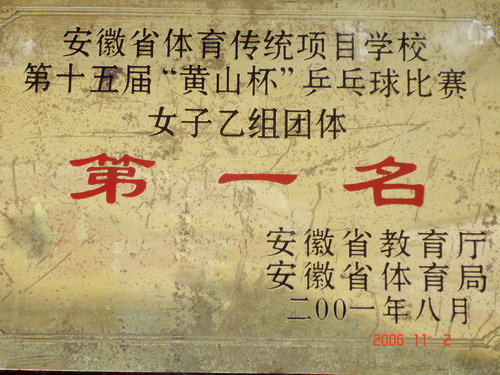 安徽省体育传统项目学校
第十五届“黄山杯”乒乓球比赛
女子乙组团体
第一名
安徽省教育厅
安徽省体育局
二〇〇一年八月
2006 11 2